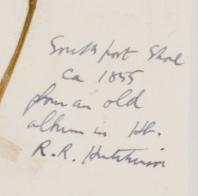 Southport Shore
ca 1855
from an old
album in
R.R. Hutchinson